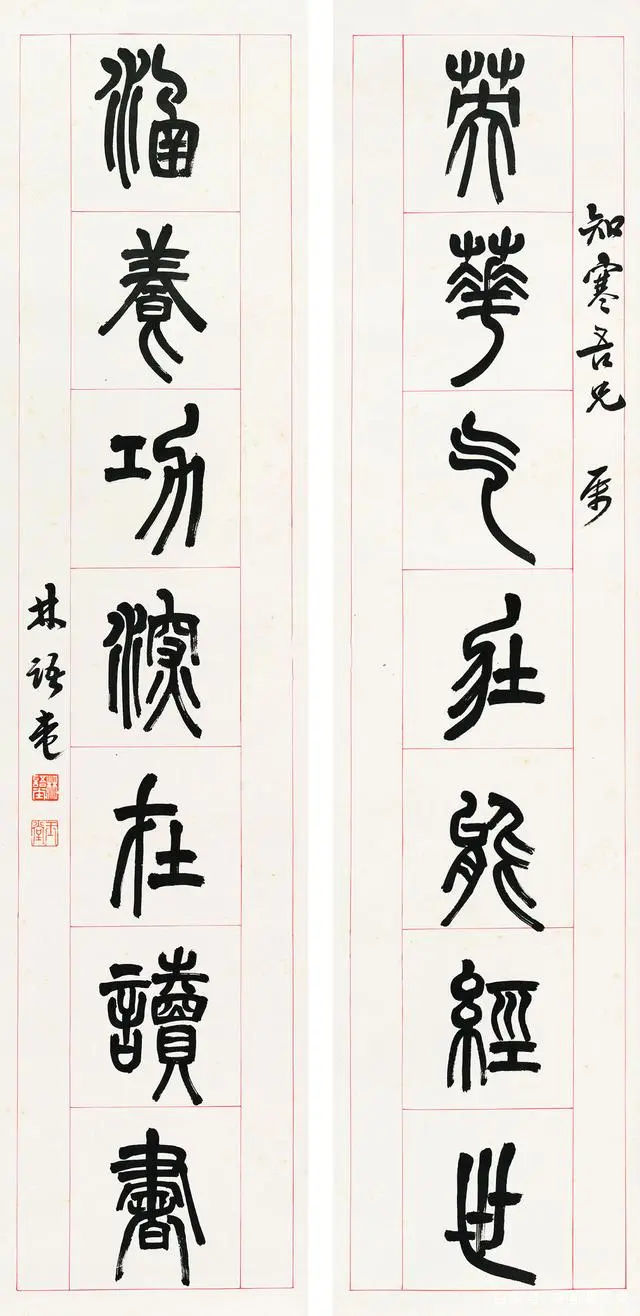 知寒吾兄 属
英華气壯能經世
涵養功深在讀書
林語堂
玉堂